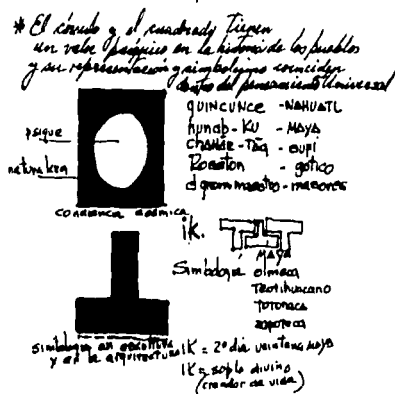 * El círculo y el cuadrado tienen
un valor psíquico en la historia de los pueblos
y su representación y simbolismo coinciden
dentro del pensamiento Universal
psique
naturaleza
conciencia cósmica
QUINCUNCE - NAHUATL
hunab-Ku - MAYA
CHAHAR-TAQ - SUFI
Roseton - gótico
d gram maestro - masones
ik.
Simbología
MAYA
olmeca
Teotihuacano
TOTONACA
zapoteca
simbología en escultura
y en la arquitectura
IK = 2º día veintena maya
IK = soplo divino
(creador de vida)